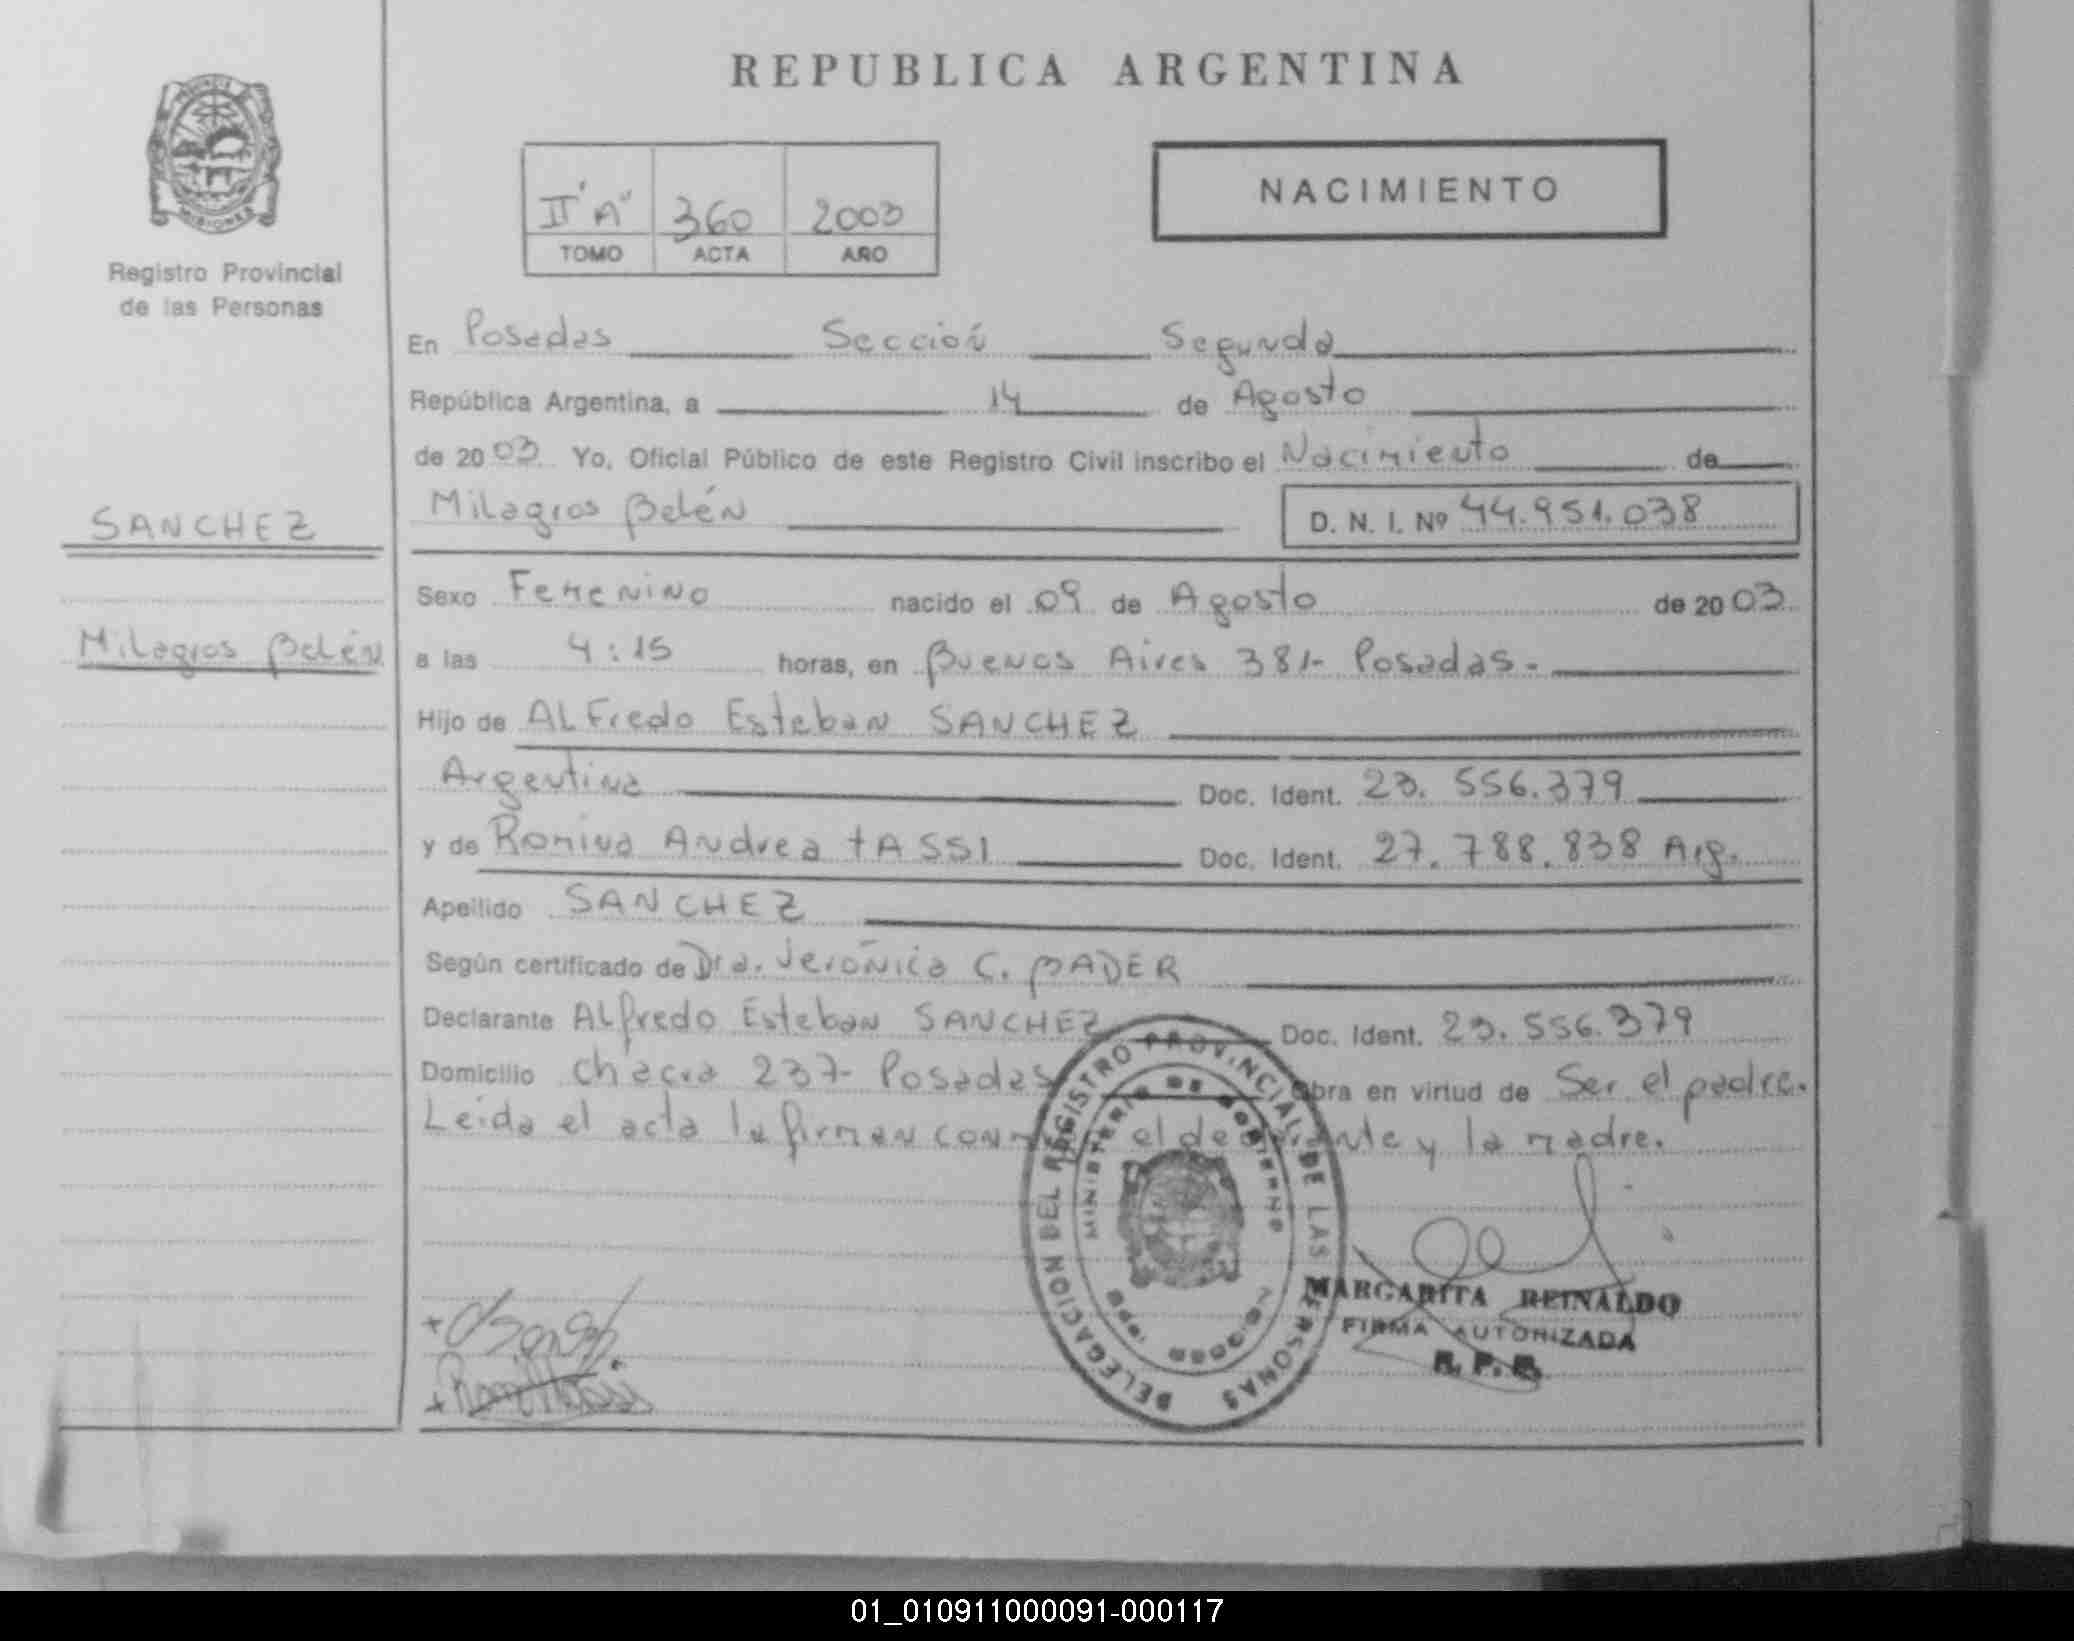 REPUBLICA ARGENTINA
PROVINCIA
MISIONES
Registro Provincial
de las Personas
II "A" 360 2003
TOMO ACTA AÑO
NACIMIENTO
En Posadas Sección Segunda
República Argentina, a 14 de Agosto
de 2003 Yo, Oficial Público de este Registro Civil inscribo el Nacimiento de
SANCHEZ
Milagros Belén
Milagros Belén D. N. I. Nº 44.951.038
Sexo Femenino nacido el 09 de Agosto de 2003
a las 4:15 horas, en Buenos Aires 381- Posadas.-
Hijo de ALFredo Esteban SANCHEZ
Argentina Doc. Ident. 23.556.379
y de Romina Andrea tASSI Doc. Ident. 27.788.838 Arg.
Apellido SANCHEZ
Según certificado de Dra. Verónica C. BADER
Declarante ALfredo Esteban SANCHEZ Doc. Ident. 23.556.379
Domicilio Chacra 237- Posadas Obra en virtud de Ser el padre.
Leida el acta la firman el declarante y la madre.
DELEGACION DEL REGISTRO PROVINCIAL DE LAS PERSONAS
MINISTERIO DE GOBIERNO
MARGARITA REINALDO
FIRMA AUTORIZADA
R. P. P.
01_010911000091-000117